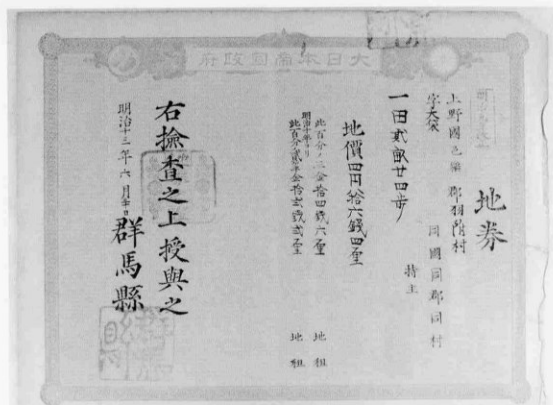 大日本帝國政府
地券
上野國邑樂郡羽附村
字大袋
同國同郡同村
持主
一田貳畝廿四歩
地價四円八拾六錢四厘
此百分ノ三金拾四錢六厘 地租
明治十年ヨリ
此百分ノ貳ヶ半金拾貳錢貳厘 地租
右檢査之上授與之
明治十三年六月 群馬縣